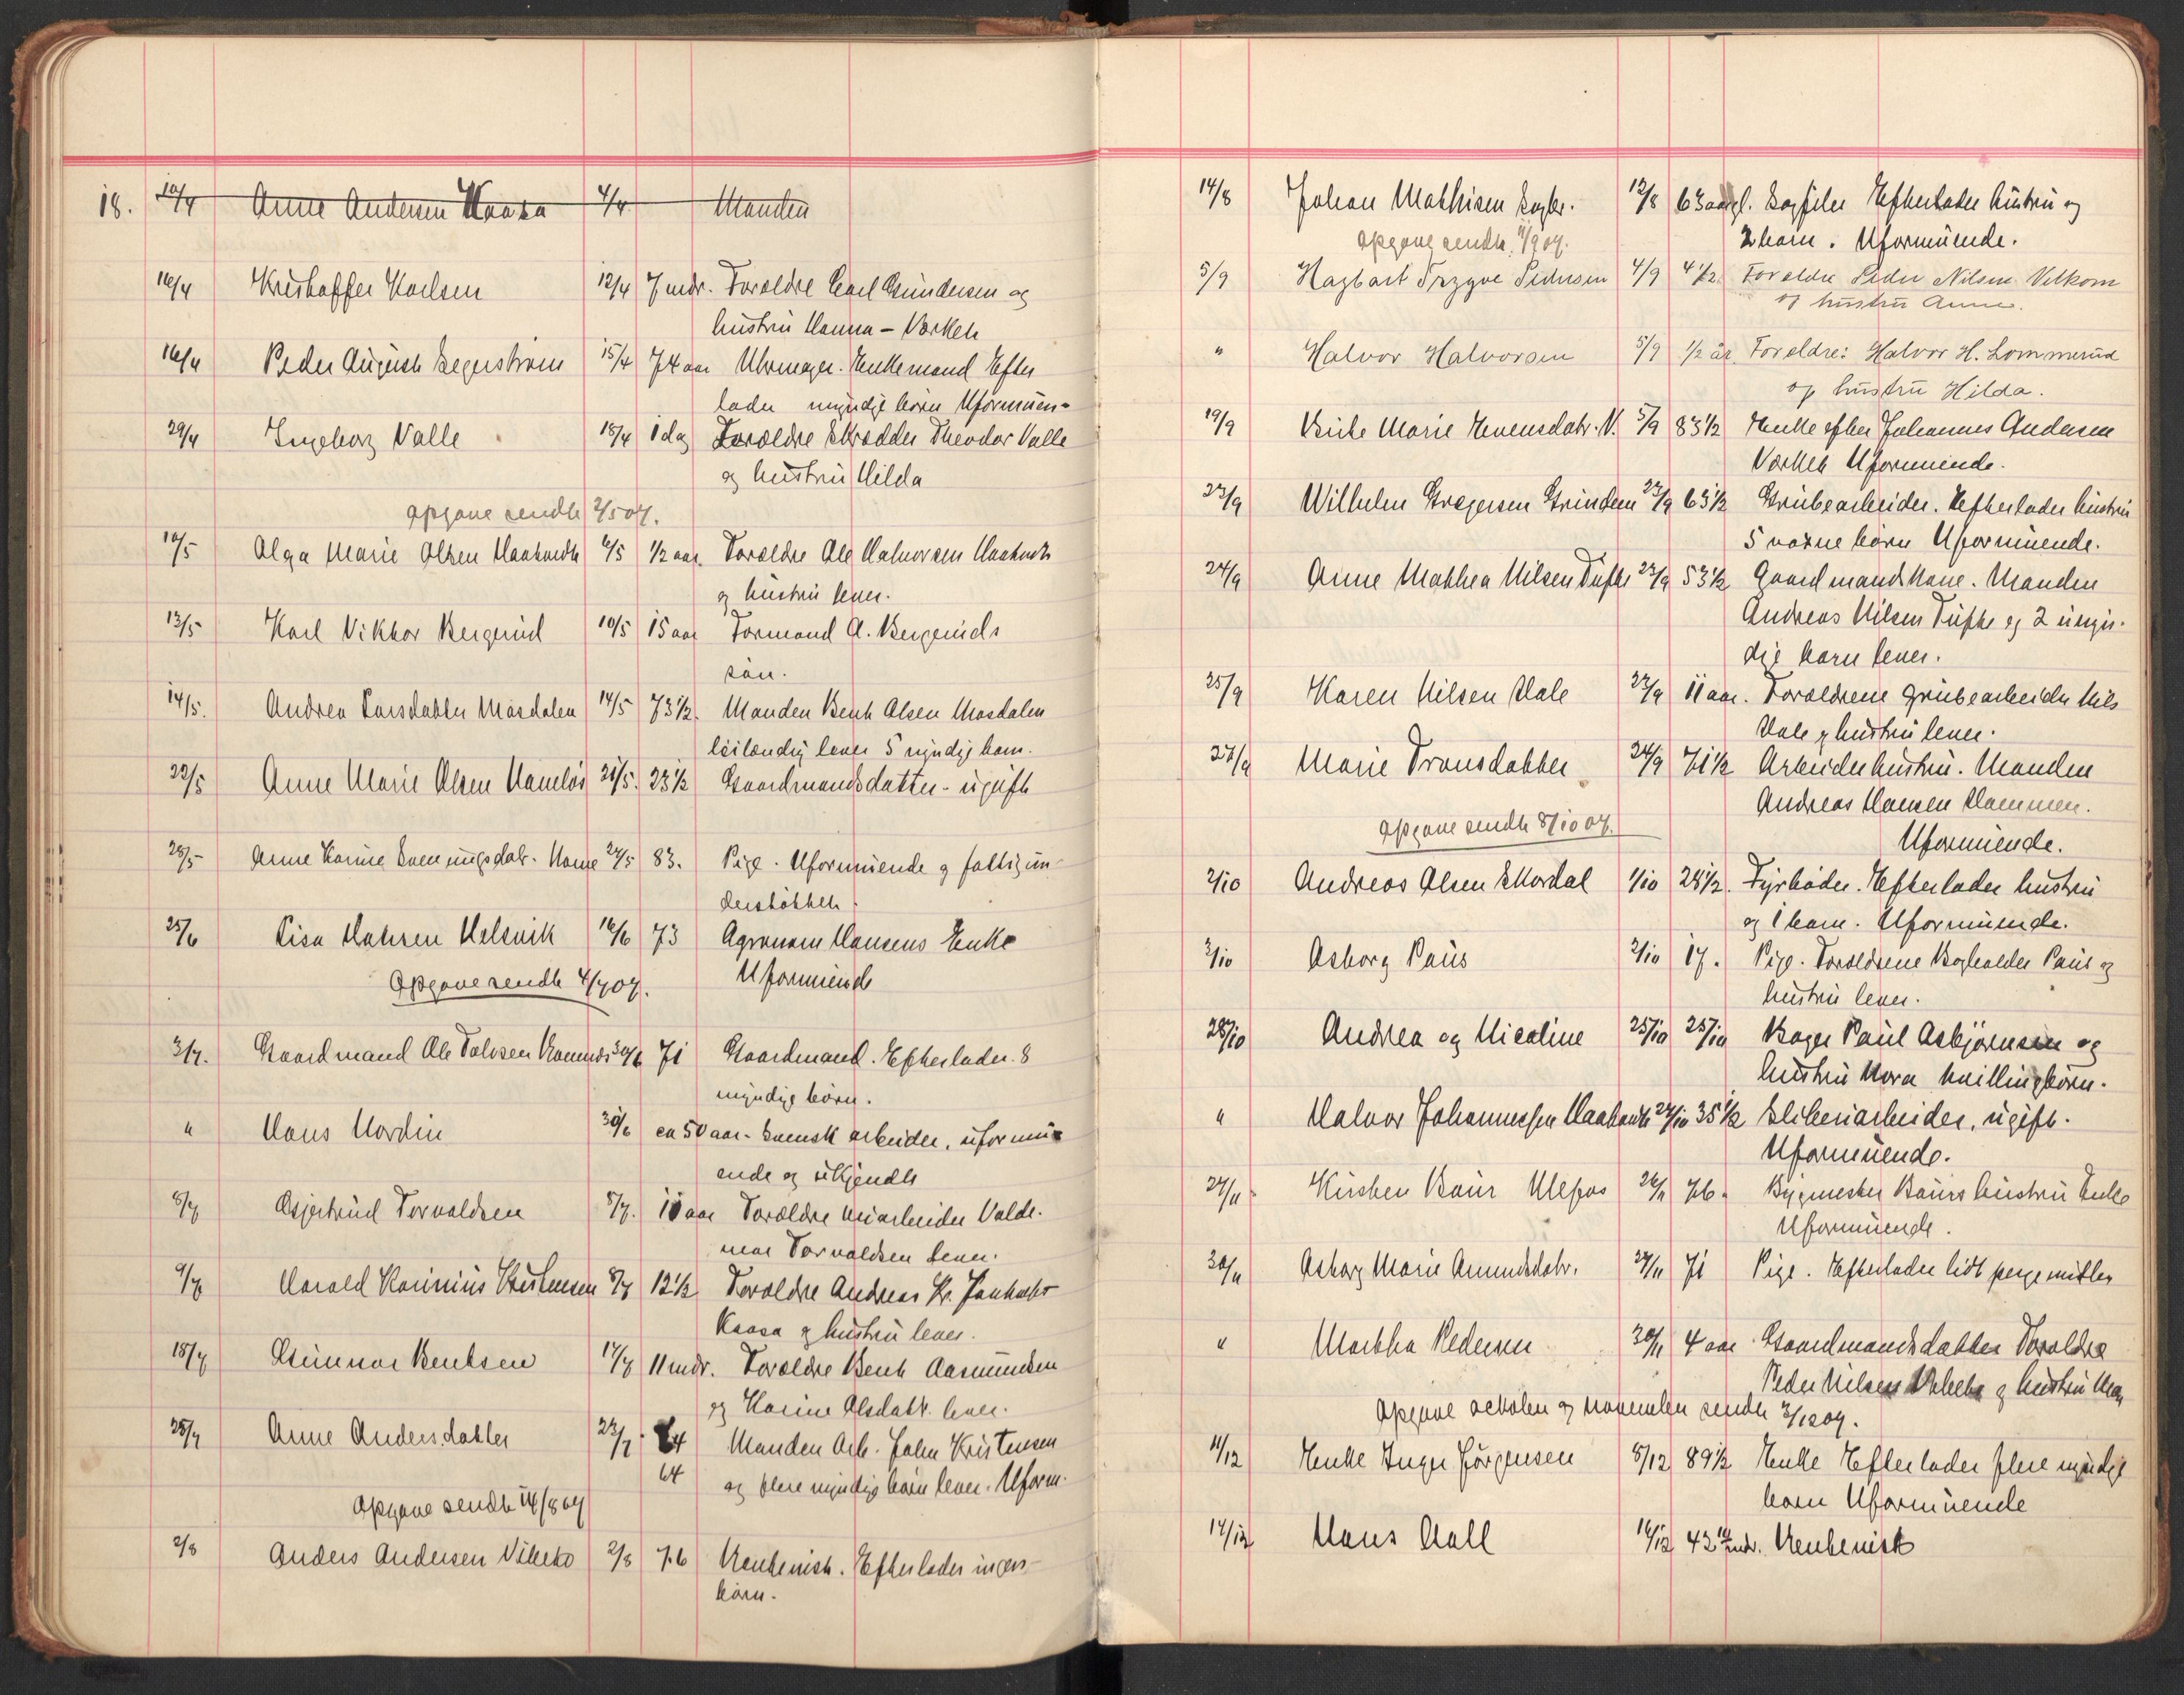 18. 10/4 Anne Andersen Kaasa 4/4 Manden
16/4 Kristoffer Karlsen 12/4 7 mdr. Forældre Carl Gundersen og
hustru Hanna - Værket
16/4 Peder August Segerstrøm 15/4 74 aar Uhrmager. Enkemand Efter
lader myndige børn Uformuen-
29/4 Ingeborg Valle 18/4 1 dag Forældre Skrædder Theodor Valle
og hustru Hilda
opgave sendt 2/5 04.
10/5 Olga Marie Olsen Haatvedt 6/5 1/2 aar. Forældre Ole Halvorsen Haatvedt
og hustru lever.
13/5 Karl Viktor Bergerud 10/5 15 aar Formand A. Bergeruds
søn.
14/5. Andrea Larsdatter Mosdalen 14/5 73 1/2. Manden Bent Olsen Mosdalen
leilænding lever 5 myndige barn.
22/5 Anne Marie Olsen Namløs 21/5. 23 1/2 Gaardmandsdatter - ugift
28/5 Anne Karine Sveinungsdatr. Home 24/5 83. Pige. Uformuende og fattigun-
derstøttet.
25/6 Lisa Hansen Helsvik 16/6 73 Agronom Hansens Enke
Opgave sendt 4/7 04. Uformuende
3/7. Gaardmand Ole Tolvsen 30/6 71 Gaardmand. Efterlader 8
myndige børn.
" Hans Nordin 30/6 ca 50 aar. Svensk arbeider, uformu-
ende og ukjendt
8/7 Asjertrud Torvaldsen 8/7. 10 aar Forældre arbeider Valde-
mar Torvaldsen lever.
9/7 Harald Karinius Kristensen 8/7 12 1/2 Forældre Andreas Kr.
Kaasa og hustru lever.
18/7 Gunnar Bentsen 17/7 11 mdr. Forældre Bent Aasmundsen
og Karine Olsdatr. lever.
25/7 Anne Andersdatter 23/7 64 Manden Arb. John Kristensen
64 og flere myndige børn lever. Uform.
Opgave sendt 14/8 04
2/8 Anders Andersen Vibeto 2/8 76 Rentenist. Efterlader ingen
børn.
14/8 Johan Mathisen Sagbr. 12/8 63 aar gl. Sagfiler Efterlader hustru og
opgave sendt 11/9 04. 2 barn. Uformuende.
5/9 Hagbart Trygve Pedersen 4/9 4 1/2 Forældre Peder Nilsen Velkom
og hustru Anne.
" Halvor Halvorsen 5/9 1/2 år Forældre: Halvor H. Lommerud
og hustru Hilda.
19/9 Marie Evensdatr. V. 5/9 83 1/2 Enke efter Johannes Andersen
Værket Uformuende.
23/9 Wilhelm Gregersen Grinden 23/9 63 1/2 Grubearbeider. Efterlader hustru
5 voxne børn Uformuende.
24/9 Anne Mathea Nilsen Tufte 23/9 53 1/2 Gaardmandskone. Manden
Andreas Nilsen Tufte og 2 umyn-
dige barn lever.
25/9 Karen Nilsen Dale 22/9 11 aar. Forældrene grubearbeider Nils
Dale og hustru lever.
27/9 Marie Tronsdatter 24/9 71 1/2 Arbeiderhustru. Manden
Andreas Hansen Hammen.
opgave sendt 8/10 04. Uformuende.
2/10 Andreas Olsen Skordal 1/10 28 1/2. Fyrbøder. Efterlader hustru
og 1 barn. Uformuende.
3/10 Asborg Paus 2/10 17. Pige. Forældrene Bogholder Paus og
hustru lever.
28/10 Andrea og Nicoline 25/10 25/10 Bager Paul Asbjørnsen og
hustru Nora tvillingbørn.
" Halvor Johannessen Haatvedt 27/10 35 1/2 Sliberiarbeider, ugift.
Uformuende.
27/11 Kirsten Baur Ulefos 26/11 76. Bygmester Baurs hustru Enke
Uformuende.
30/11 Asborg Marie Amundsdatr. 27/11 71 Pige. Efterlader lidt pengemidler
" Martha Pedersen 30/11 4 aar Gaardmandsdatter Forældre
Peder Nilsen og hustru
Opgave oktober og november sendt 3/12 04.
11/12 Enke Inger Jørgensen 8/12 89 1/2 Enke Efterlader flere myndige
børn Uformuende
14/12 Hans Aall 14/12 43 mdr. Rentenist